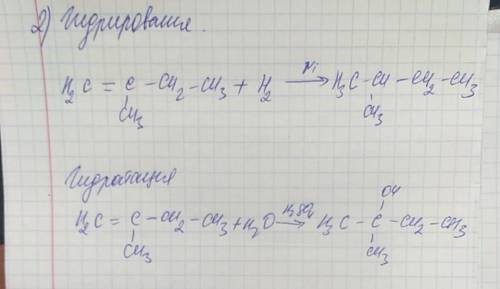 2) Гидрирования.
H₂C = C – CH₂ – CH₃ + H₂ →Ni H₃C – CH – CH₂ – CH₃
CH₃ CH₃
Гидратация
OH
H₂C = C – CH₂ – CH₃ + H₂O →H₂SO₄ H₃C – C – CH₂ – CH₃
CH₃ CH₃